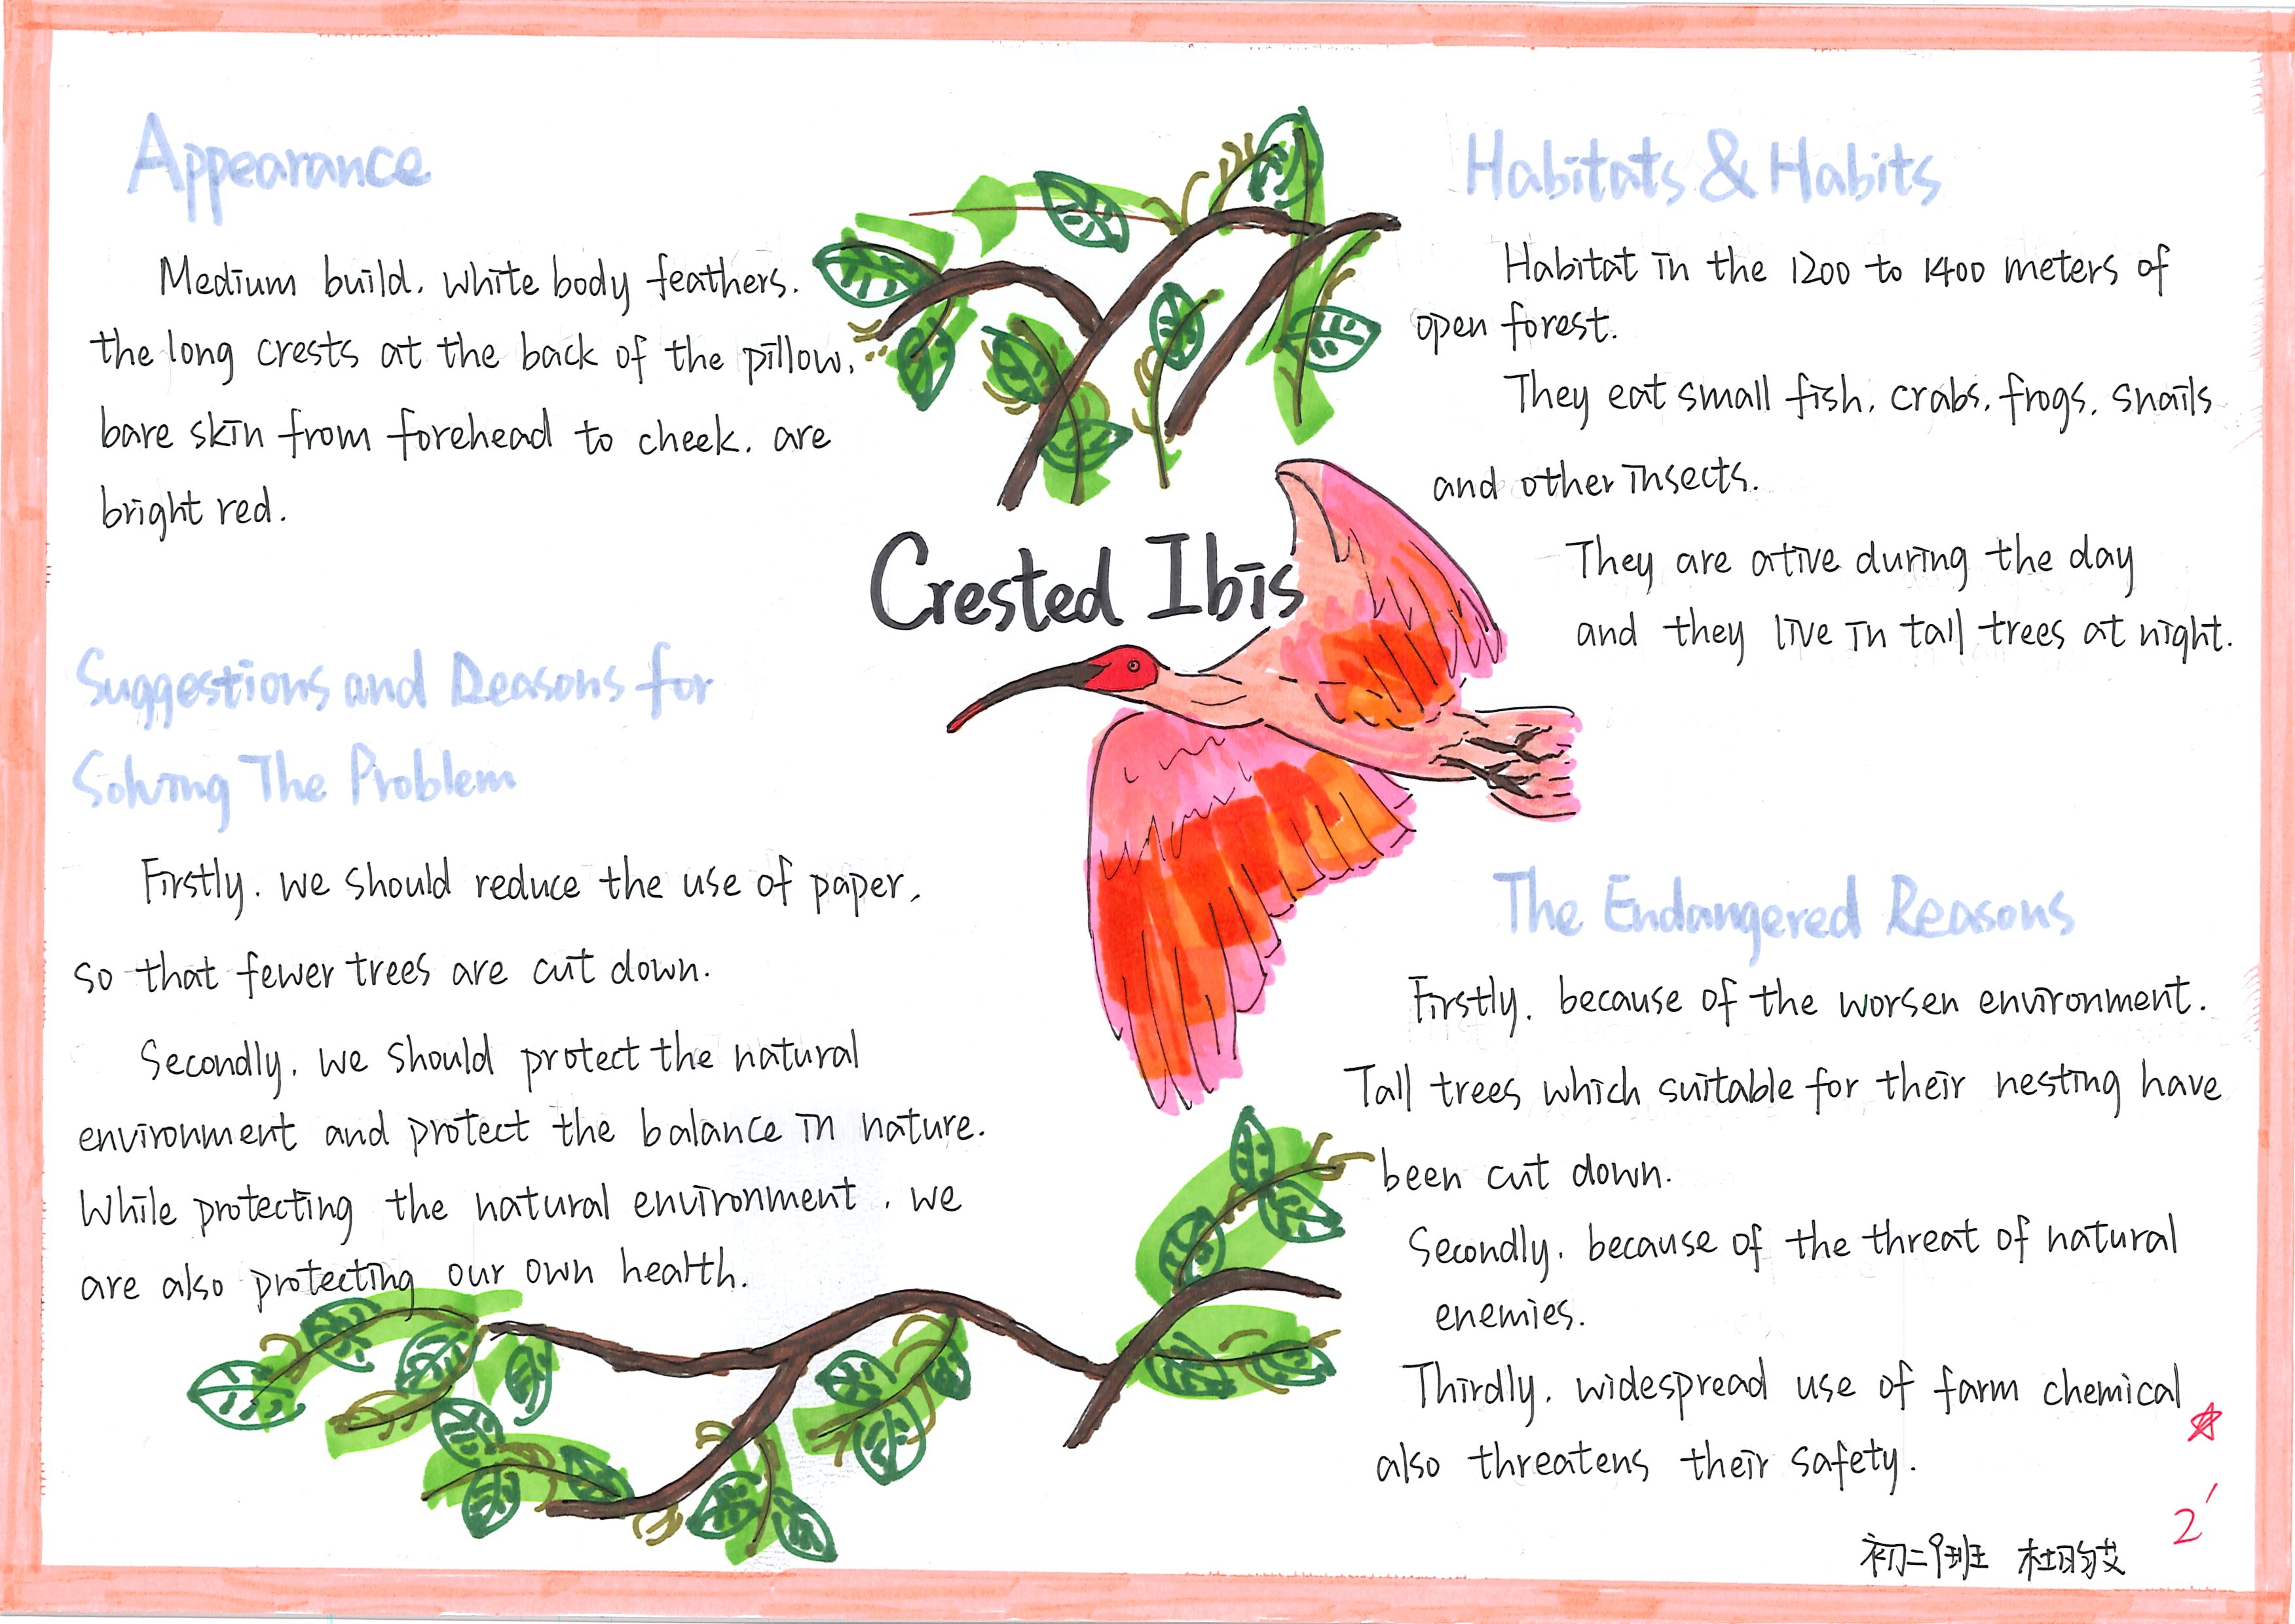 Appearance
Medium build, white body feathers.
the long crests at the back of the pillow,
bare skin from forehead to cheek, are
bright red.
Crested Ibis
Habitats & Habits
Habitat in the 1200 to 1400 meters of
open forest.
They eat small fish, crabs, frogs, snails
and other insects.
They are ative during the day
and they live in tall trees at night.
Suggestions and Reasons for
Solving The Problem
Firstly, we should reduce the use of paper,
so that fewer trees are cut down.
Secondly, we should protect the natural
environment and protect the balance in nature.
While protecting the natural environment, we
are also protecting our own health.
The Endangered Reasons
Firstly, because of the worsen environment.
Tall trees which suitable for their nesting have
been cut down.
Secondly, because of the threat of natural
enemies.
Thirdly, widespread use of farm chemical
also threatens their safety.
2'
初二9班 杜昀芠